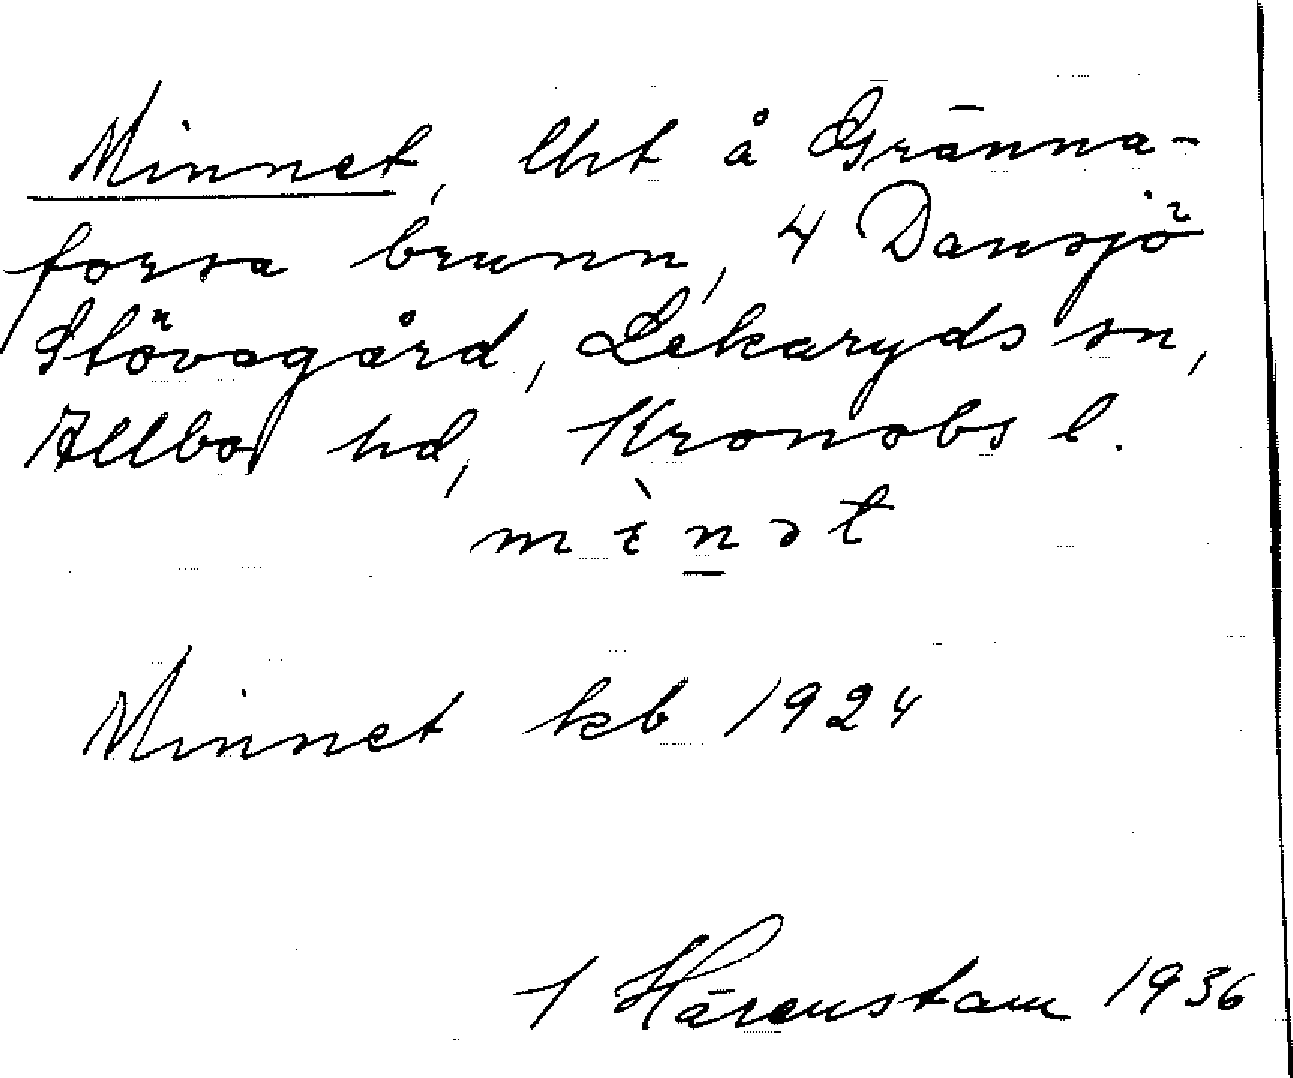 Minnet, lht å Gränna-
forsa brunn, 4 Dansjö
Slövsgård, Lekaryds sn,
Allbo hd, Kronobs l.
mìnət
Minnet kb 1924
I Härenstam 1936